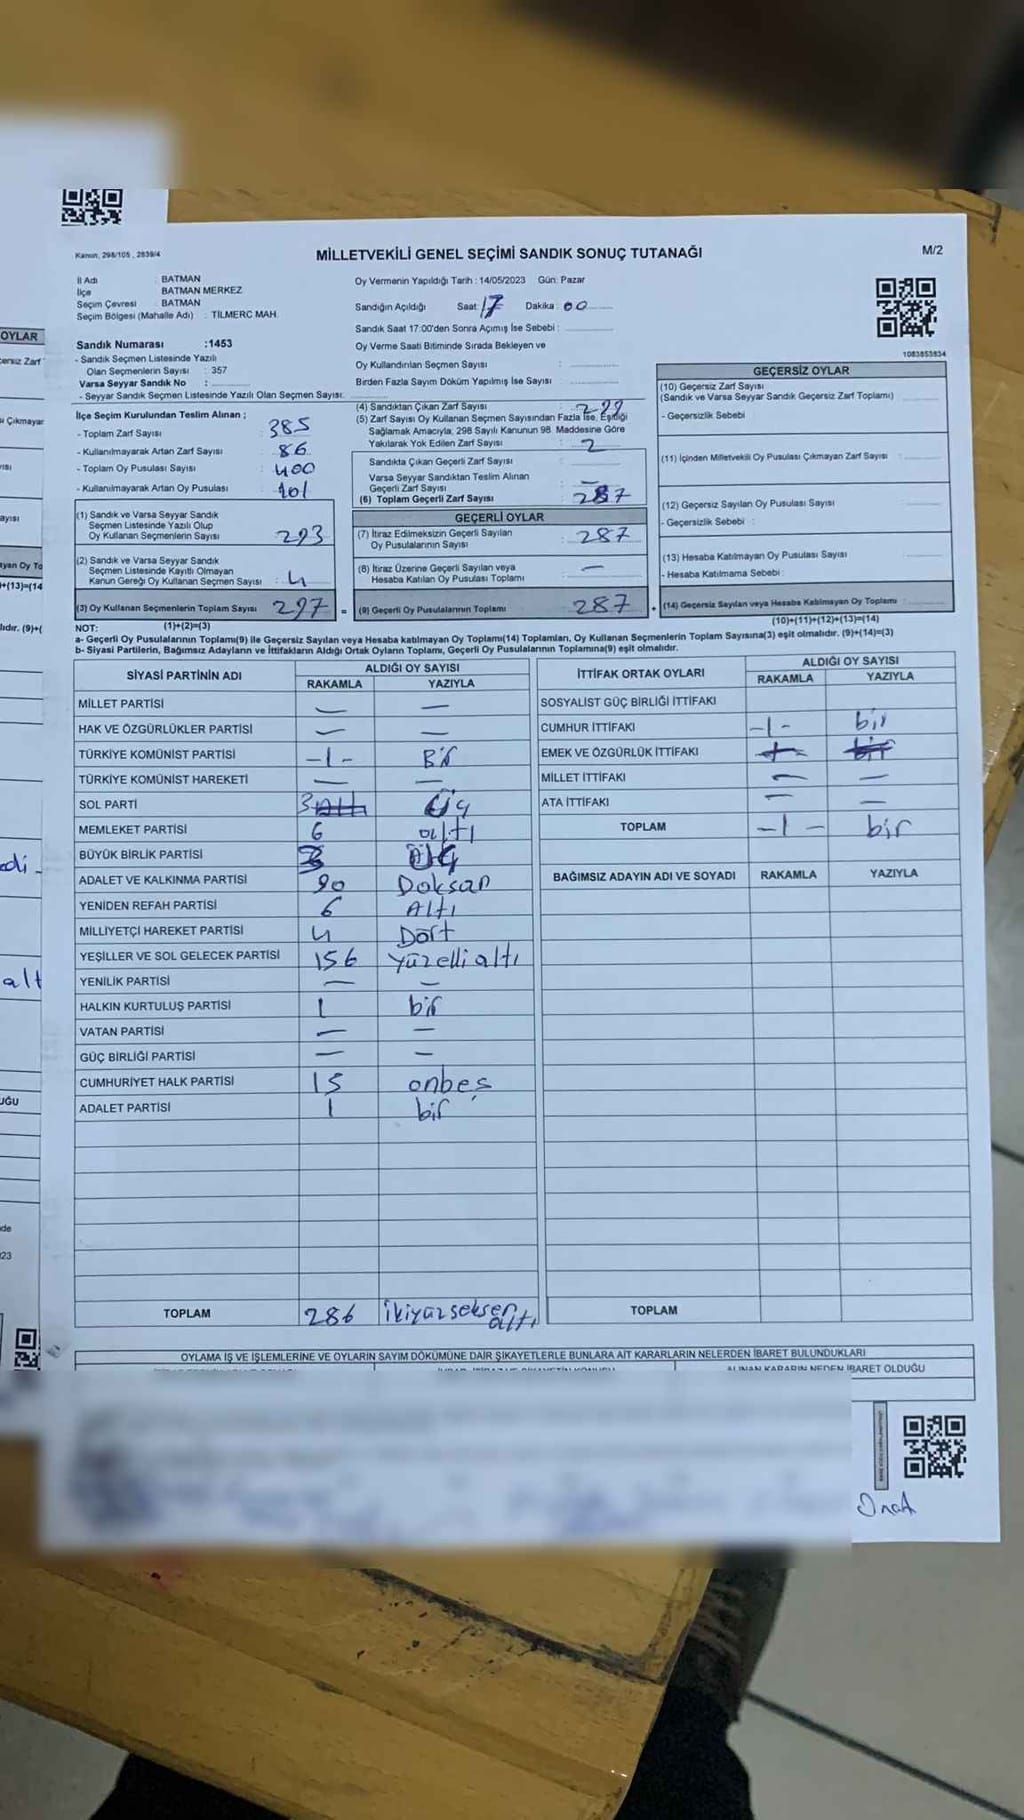 Kanun, 298/105 , 2839/4
MİLLETVEKİLİ GENEL SEÇİMİ SANDIK SONUÇ TUTANAĞI
M/2
İl Adı : BATMAN
İlçe BATMAN MERKEZ
Seçim Çevresi : BATMAN
Seçim Bölgesi (Mahalle Adı) : TİLMERC MAH.
Oy Vermenin Yapıldığı Tarih : 14/05/2023 Gün: Pazar
Sandığın Açıldığı Saat : 17 Dakika : 00
Sandık Saat 17:00'den Sonra Açımış İse Sebebi :
Oy Verme Saati Bitiminde Sırada Bekleyen ve
Oy Kullandırılan Seçmen Sayısı :
Birden Fazla Sayım Döküm Yapılmış İse Sayısı :
Sandık Numarası :1453
- Sandık Seçmen Listesinde Yazılı
Olan Seçmenlerin Sayısı : 357
Varsa Seyyar Sandık No :
- Seyyar Sandık Seçmen Listesinde Yazılı Olan Seçmen Sayısı:
İlçe Seçim Kurulundan Teslim Alınan ;
- Toplam Zarf Sayısı : 385
- Kullanılmayarak Artan Zarf Sayısı : 86
- Toplam Oy Pusulası Sayısı : 400
- Kullanılmayarak Artan Oy Pusulası : 101
(1) Sandık ve Varsa Seyyar Sandık
Seçmen Listesinde Yazılı Olup
Oy Kullanan Seçmenlerin Sayısı : 293
(2) Sandık ve Varsa Seyyar Sandık
Seçmen Listesinde Kayıtlı Olmayan
Kanun Gereği Oy Kullanan Seçmen Sayısı : 4
(3) Oy Kullanan Seçmenlerin Toplam Sayısı 297 =
(1)+(2)=(3)
(4) Sandıktan Çıkan Zarf Sayısı : 299
(5) Zarf Sayısı Oy Kullanan Seçmen Sayısından Fazla İse, Eşitliği
Sağlamak Amacıyla, 298 Sayılı Kanunun 98. Maddesine Göre
Yakılarak Yok Edilen Zarf Sayısı : 2
Sandıkta Çıkan Geçerli Zarf Sayısı :
Varsa Seyyar Sandıktan Teslim Alınan
Geçerli Zarf Sayısı : —
(6) Toplam Geçerli Zarf Sayısı : 287
GEÇERLİ OYLAR
(7) İtiraz Edilmeksizin Geçerli Sayılan
Oy Pusulalarının Sayısı : 287
(8) İtiraz Üzerine Geçerli Sayılan veya
Hesaba Katılan Oy Pusulası Toplamı : —
(9) Geçerli Oy Pusulalarının Toplamı 287 +
1083853934
GEÇERSİZ OYLAR
(10) Geçersiz Zarf Sayısı
(Sandık ve Varsa Seyyar Sandık Geçersiz Zarf Toplamı) :
- Geçersizlik Sebebi :
(11) İçinden Milletvekili Oy Pusulası Çıkmayan Zarf Sayısı :
(12) Geçersiz Sayılan Oy Pusulası Sayısı :
- Geçersizlik Sebebi :
(13) Hesaba Katılmayan Oy Pusulası Sayısı :
- Hesaba Katılmama Sebebi :
(14) Geçersiz Sayılan veya Hesaba Katılmayan Oy Toplamı :
(10)+(11)+(12)+(13)=(14)
NOT:
a- Geçerli Oy Pusulalarının Toplamı(9) ile Geçersiz Sayılan veya Hesaba katılmayan Oy Toplamı(14) Toplamları, Oy Kullanan Seçmenlerin Toplam Sayısına(3) eşit olmalıdır. (9)+(14)=(3)
b- Siyasi Partilerin, Bağımsız Adayların ve İttifakların Aldığı Ortak Oyların Toplamı, Geçerli Oy Pusulalarının Toplamına(9) eşit olmalıdır.
SİYASİ PARTİNİN ADI ALDIĞI OY SAYISI
RAKAMLA YAZIYLA
MİLLET PARTİSİ — —
HAK VE ÖZGÜRLÜKLER PARTİSİ — —
TÜRKİYE KOMÜNİST PARTİSİ -1- Bir
TÜRKİYE KOMÜNİST HAREKETİ — —
SOL PARTİ 3 Üç
MEMLEKET PARTİSİ 6 altı
BÜYÜK BİRLİK PARTİSİ 3 Üç
ADALET VE KALKINMA PARTİSİ 90 Doksan
YENİDEN REFAH PARTİSİ 6 Altı
MİLLİYETÇİ HAREKET PARTİSİ 4 Dört
YEŞİLLER VE SOL GELECEK PARTİSİ 156 yüzelli altı
YENİLİK PARTİSİ — —
HALKIN KURTULUŞ PARTİSİ 1 bir
VATAN PARTİSİ — —
GÜÇ BİRLİĞİ PARTİSİ — —
CUMHURİYET HALK PARTİSİ 15 onbeş
ADALET PARTİSİ 1 bir
TOPLAM 286 ikiyüzseksen altı
İTTİFAK ORTAK OYLARI ALDIĞI OY SAYISI
RAKAMLA YAZIYLA
SOSYALİST GÜÇ BİRLİĞİ İTTİFAKI
CUMHUR İTTİFAKI -1- bir
EMEK VE ÖZGÜRLÜK İTTİFAKI 1 bir
MİLLET İTTİFAKI — —
ATA İTTİFAKI — —
TOPLAM -1- bir
BAĞIMSIZ ADAYIN ADI VE SOYADI RAKAMLA YAZIYLA
TOPLAM
OYLAMA İŞ VE İŞLEMLERİNE VE OYLARIN SAYIM DÖKÜMÜNE DAİR ŞİKAYETLERLE BUNLARA AİT KARARLARIN NELERDEN İBARET BULUNDUKLARI
ALINAN KARARIN NEDEN İBARET OLDUĞU
OYLAR